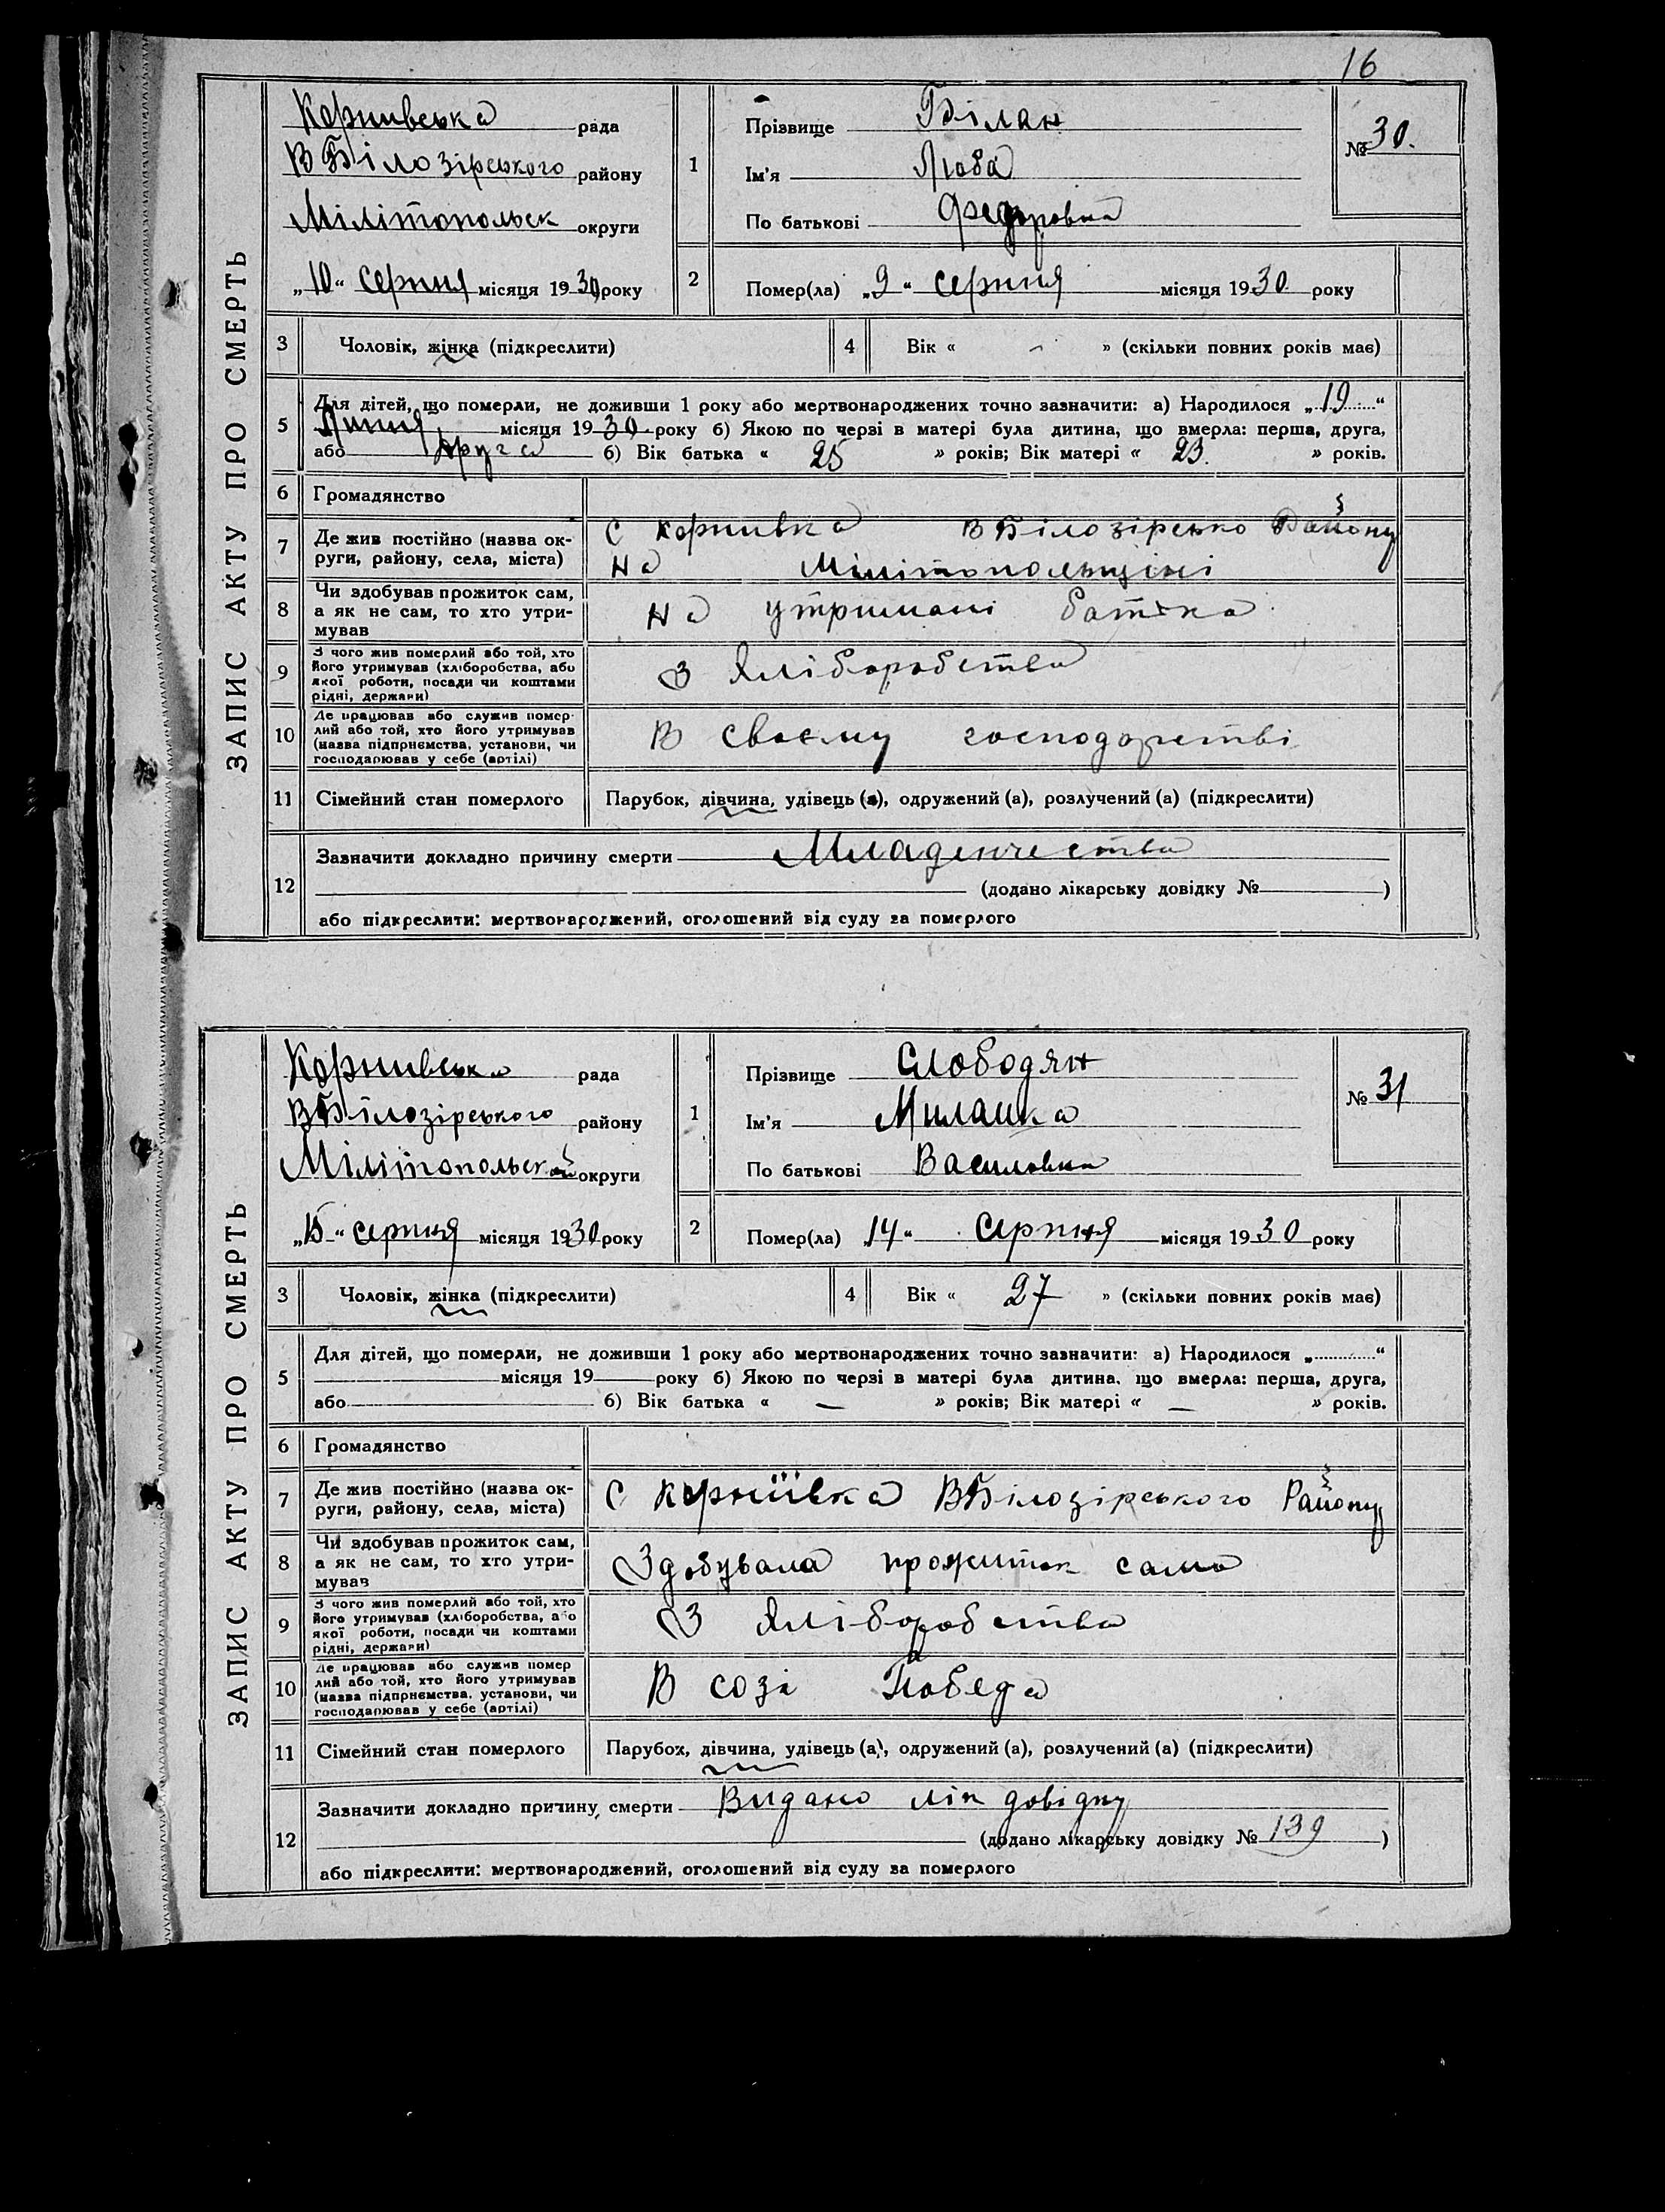 16
ЗАПИС АКТУ ПРО СМЕРТЬ
Корнивська рада
В Білозірського району
Мілітопольск округи
„10“ серпня місяця 1930 року
1
Прізвище Білан
Ім'я Люба
По батькові Федоровна
№ 30.
2
Помер(ла) „9“ серпня місяця 1930 року
3 Чоловік, жінка (підкреслити)
4 Вік « - » (скільки повних років має)
5 Для дітей, що померли, не доживши 1 року або мертвонароджених точно зазначити: а) Народилося „19“
Липня місяця 1930 року б) Якою по черзі в матері була дитина, що вмерла: перша, друга,
або друга б) Вік батька « 25 » років; Вік матері « 23. » років.
6 Громадянство
7 Де жив постійно (назва ок-
руги, району, села, міста)
С Корнивка В Білозірсько Району
на Мілітопольщіні
8 Чи здобував прожиток сам,
а як не сам, то хто утри-
мував
на утримані батька
9 З чого жив померлий або той, хто
його утримував (хліборобства, або
якої роботи, посади чи коштами
рідні, держави)
З Хліборобства
10 Де працював або служив помер-
лий або той, хто його утримував
(назва підприємства, установи, чи
господарював у себе (артілі)
В своєму господарстві
11 Сімейний стан померлого Парубок, дівчина, удівець (а), одружений (а), розлучений (а) (підкреслити)
12 Зазначити докладно причину смерти Младенчества
(додано лікарську довідку № )
або підкреслити: мертвонароджений, оголошений від суду за померлого
ЗАПИС АКТУ ПРО СМЕРТЬ
Корнивська рада
В Білозірського району
Мілітопольской округи
„15“ серпня місяця 1930 року
1
Прізвище Слободян
Ім'я Милашка
По батькові Василовна
№ 31
2
Помер(ла) „14“ Серпня місяця 1930 року
3 Чоловік, жінка (підкреслити)
4 Вік « 27 » (скільки повних років має)
5 Для дітей, що померли, не доживши 1 року або мертвонароджених точно зазначити: а) Народилося „ “
місяця 19 року б) Якою по черзі в матері була дитина, що вмерла: перша, друга,
або б) Вік батька « — » років; Вік матері « — » років.
6 Громадянство
7 Де жив постійно (назва ок-
руги, району, села, міста)
С Корніївка В Білозірського Району
8 Чи здобував прожиток сам,
а як не сам, то хто утри-
мував
Здобувала прожиток сама
9 З чого жив померлий або той, хто
його утримував (хліборобства, або
якої роботи, посади чи коштами
рідні, держави)
З Хліборобства
10 Де працював або служив помер
лий або той, хто його утримував
(назва підприємства, установи, чи
господарював у себе (артілі)
В созі Победа
11 Сімейний стан померлого Парубох, дівчина, удівець (а), одружений (а), розлучений (а) (підкреслити)
12 Зазначити докладно причину смерти Видано лік довідку
(додано лікарську довідку № 139 )
або підкреслити: мертвонароджений, оголошений від суду за померлого